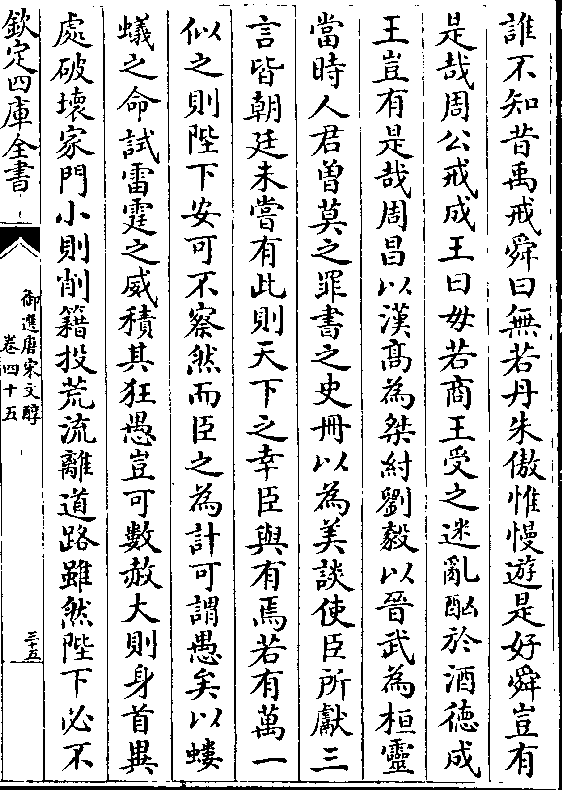 誰不知昔禹戒舜曰無若丹朱傲惟慢遊是好舜豈有
是哉周公戒成王曰毋若商王受之迷亂酗於酒德成
王豈有是哉周昌以漢髙為桀紂劉毅以晉武為桓靈
當時人君曾莫之罪書之史冊以為美談使臣所獻三
言皆朝廷未嘗有此則天下之幸臣與有焉若有萬一
似之則陛下安可不察然而臣之為計可謂愚矣以螻
蟻之命試雷霆之威積其狂愚豈可數赦大則身首異
處破壊家門小則削籍投荒流離道路雖然陛下必不
欽定四庫全書
御選唐宋文醇
卷四十五
三五